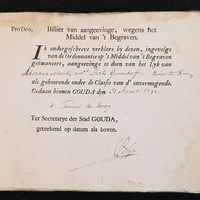 Pro Deo, Billiet van aangeevinge, wegens het
Middel van 't Begraven.
Ik ondergeschreve verklare by dezen, ingevolge
van de Ordonnantie op 't Middel van 't Begraven
geëmaneert, aangeevinge te doen van het Lyk van
als gehoorende onder de Classe van d' onvermogende.
Gedaan binnen GOUDA den 31 Maart
Ter Secretarye der Stad GOUDA,
geteekend op datum als boven.